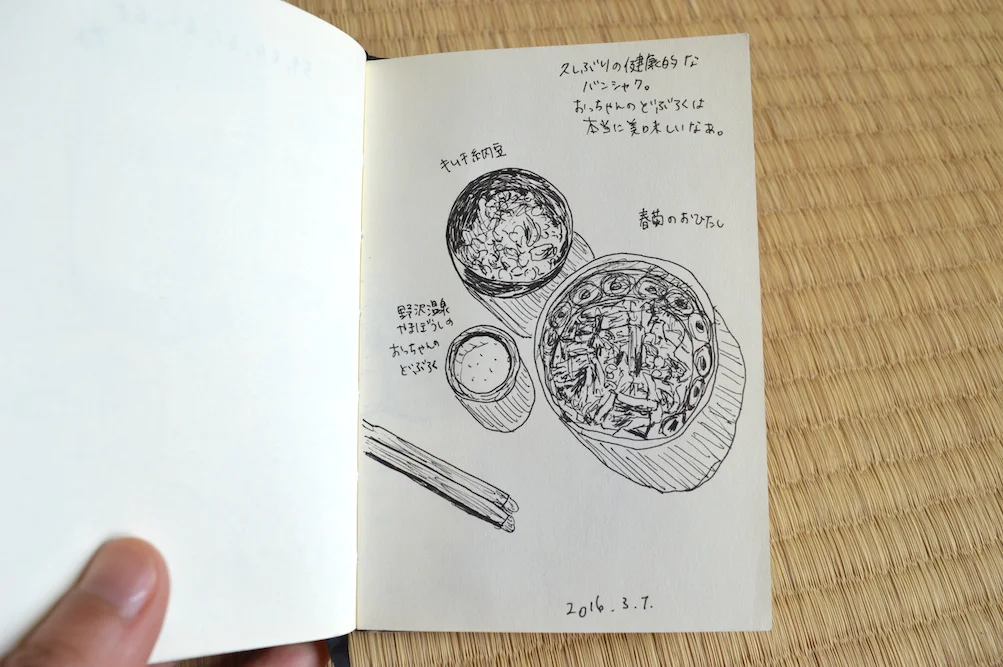 久しぶりの健康的な
バンシャク。
おっちゃんのどぶろくは
本当に美味しいなぁ。
キムチ納豆
春菊のおひたし
野沢温泉
やまぼうしの
おっちゃんの
どぶろく
2016.3.7.